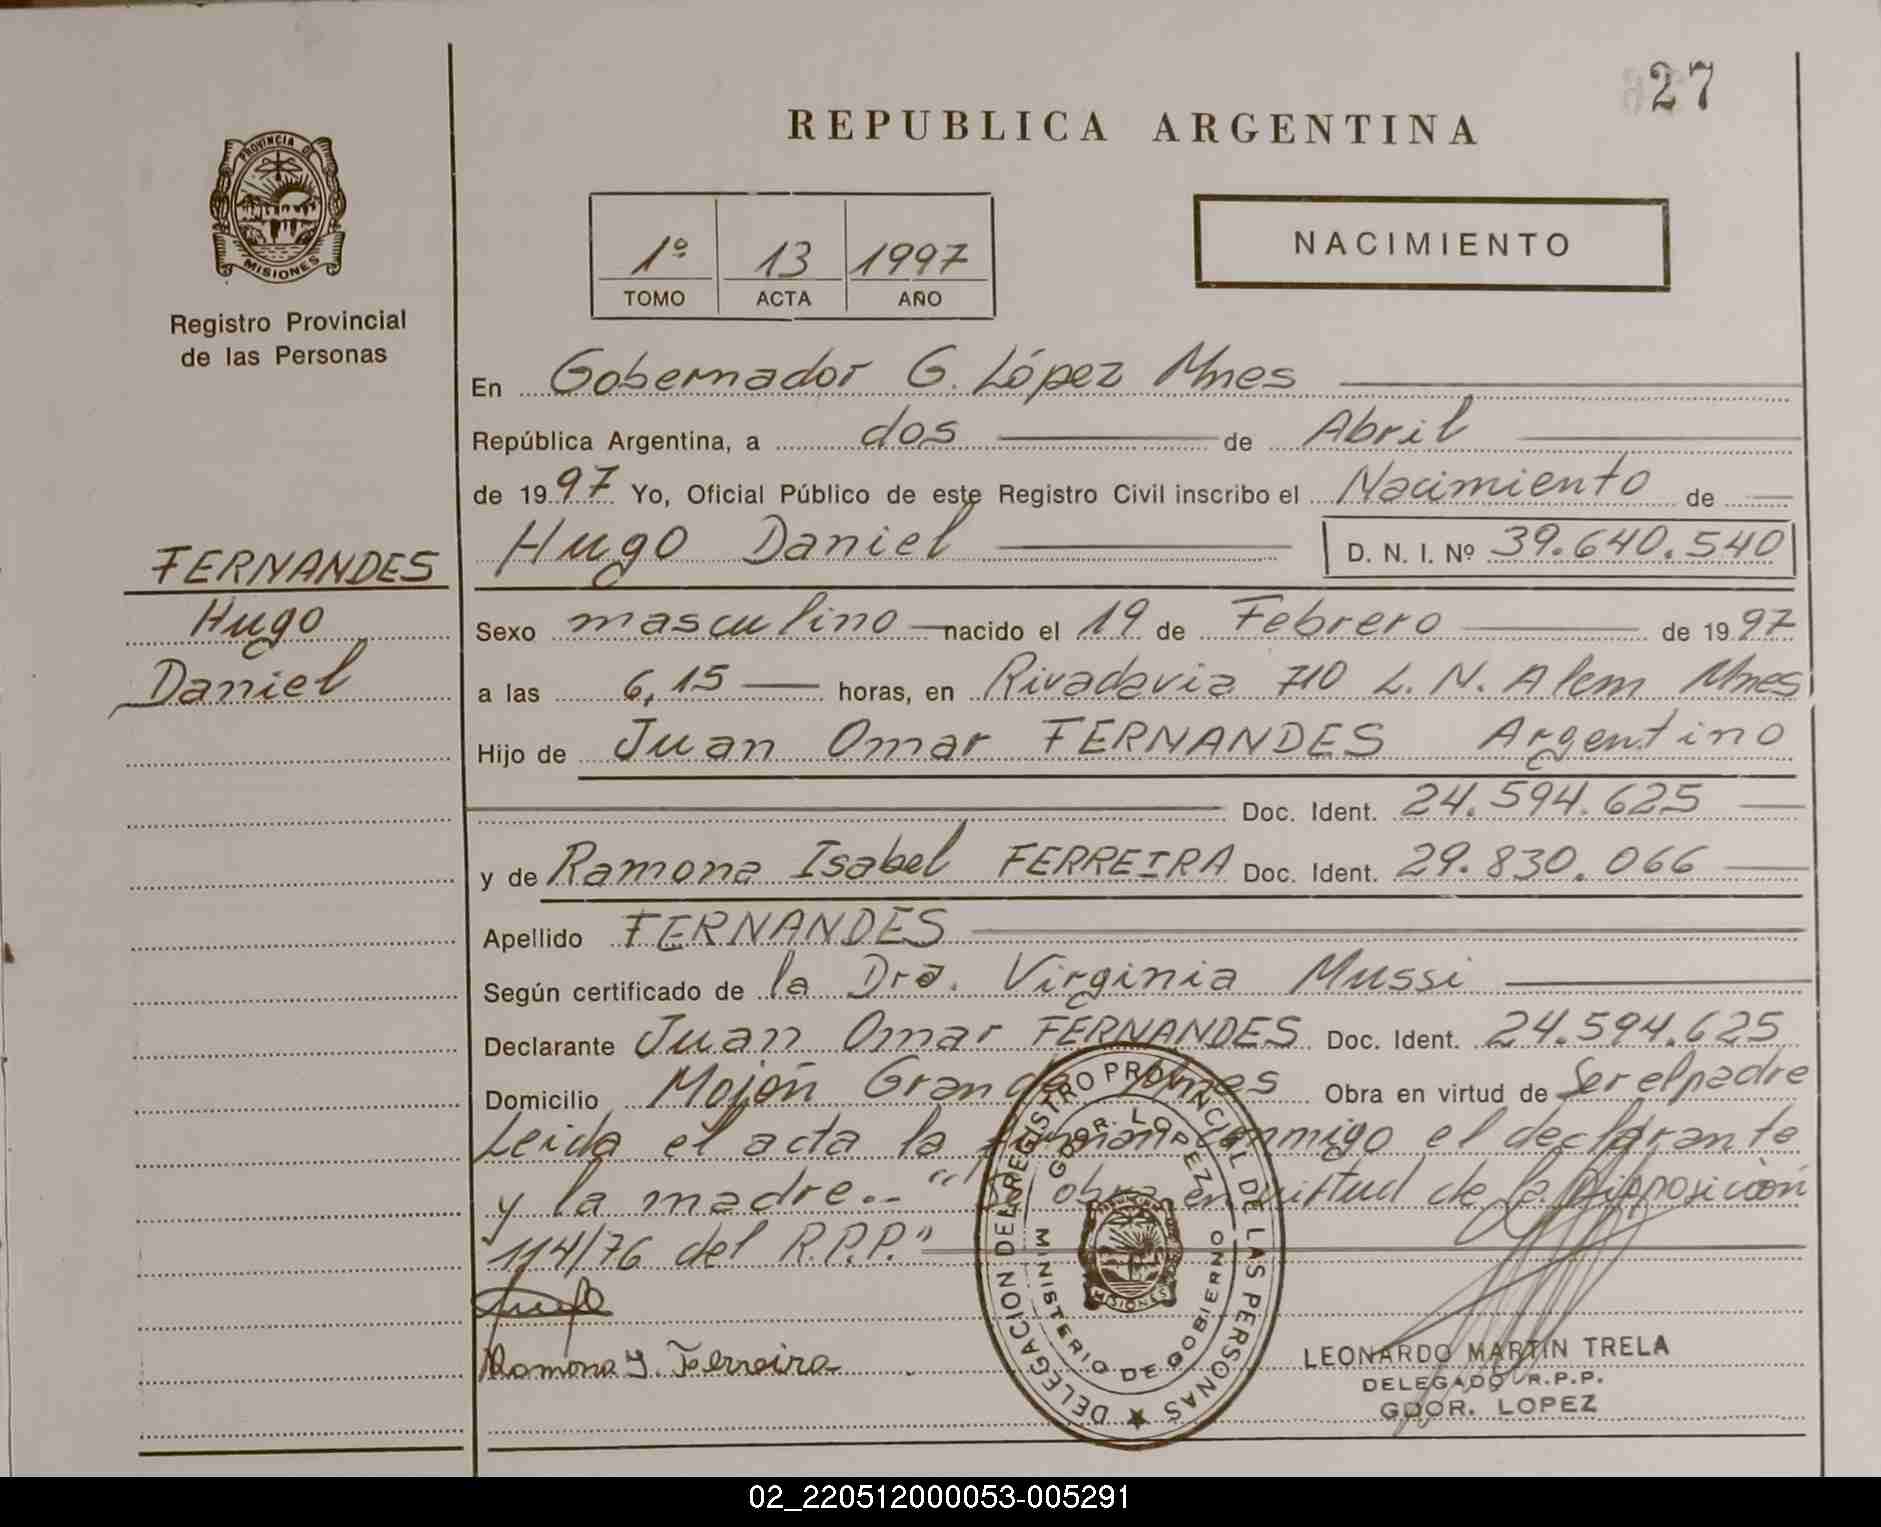 27
REPUBLICA ARGENTINA
PROVINCIA DE
MISIONES
Registro Provincial
de las Personas
1º 13 1997
TOMO ACTA AÑO
NACIMIENTO
En Gobernador G. López Mnes
República Argentina, a dos de Abril
de 1997 Yo, Oficial Público de este Registro Civil inscribo el Nacimiento de
Hugo Daniel D. N. I. Nº 39.640.540
FERNANDES
Hugo
Daniel
Sexo masculino nacido el 19 de Febrero de 1997
a las 6,15 horas, en Rivadavia 710 L. N. Alem Mnes
Hijo de Juan Omar FERNANDES Argentino
Doc. Ident. 24.594.625
y de Ramona Isabel FERREIRA Doc. Ident. 29.830.066
Apellido FERNANDES
Según certificado de la Dra. Virginia Mussi
Declarante Juan Omar FERNANDES Doc. Ident. 24.594.625
Domicilio Mojón Grande Mnes Obra en virtud de Ser el padre
Leida el acta la firman conmigo el declarante
y la madre.- " obra en virtud de la Disposición
114/76 del R.P.P."
Ramona I. Ferreira
DELEGACION DEL REGISTRO PROVINCIAL DE LAS PERSONAS
GDOR. LOPEZ
MINISTERIO DE GOBIERNO
MISIONES
LEONARDO MARTIN TRELA
DELEGADO R.P.P.
GDOR. LOPEZ
02_220512000053-005291